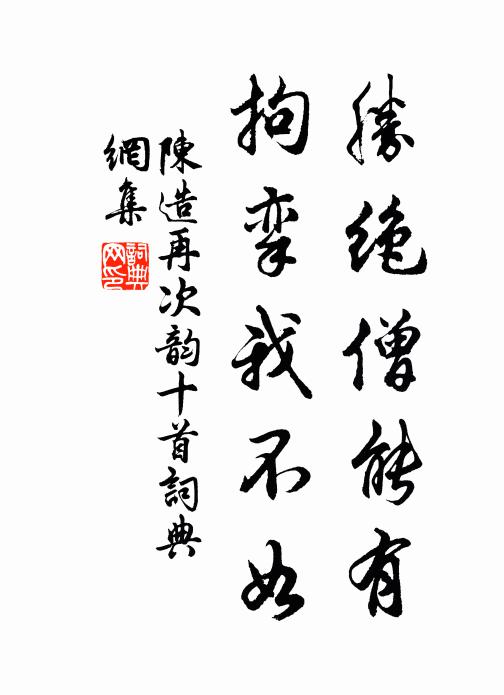 勝絕僧能有
拘挛我不如
陳造再次韵十首詞典
網集
詞典
网印